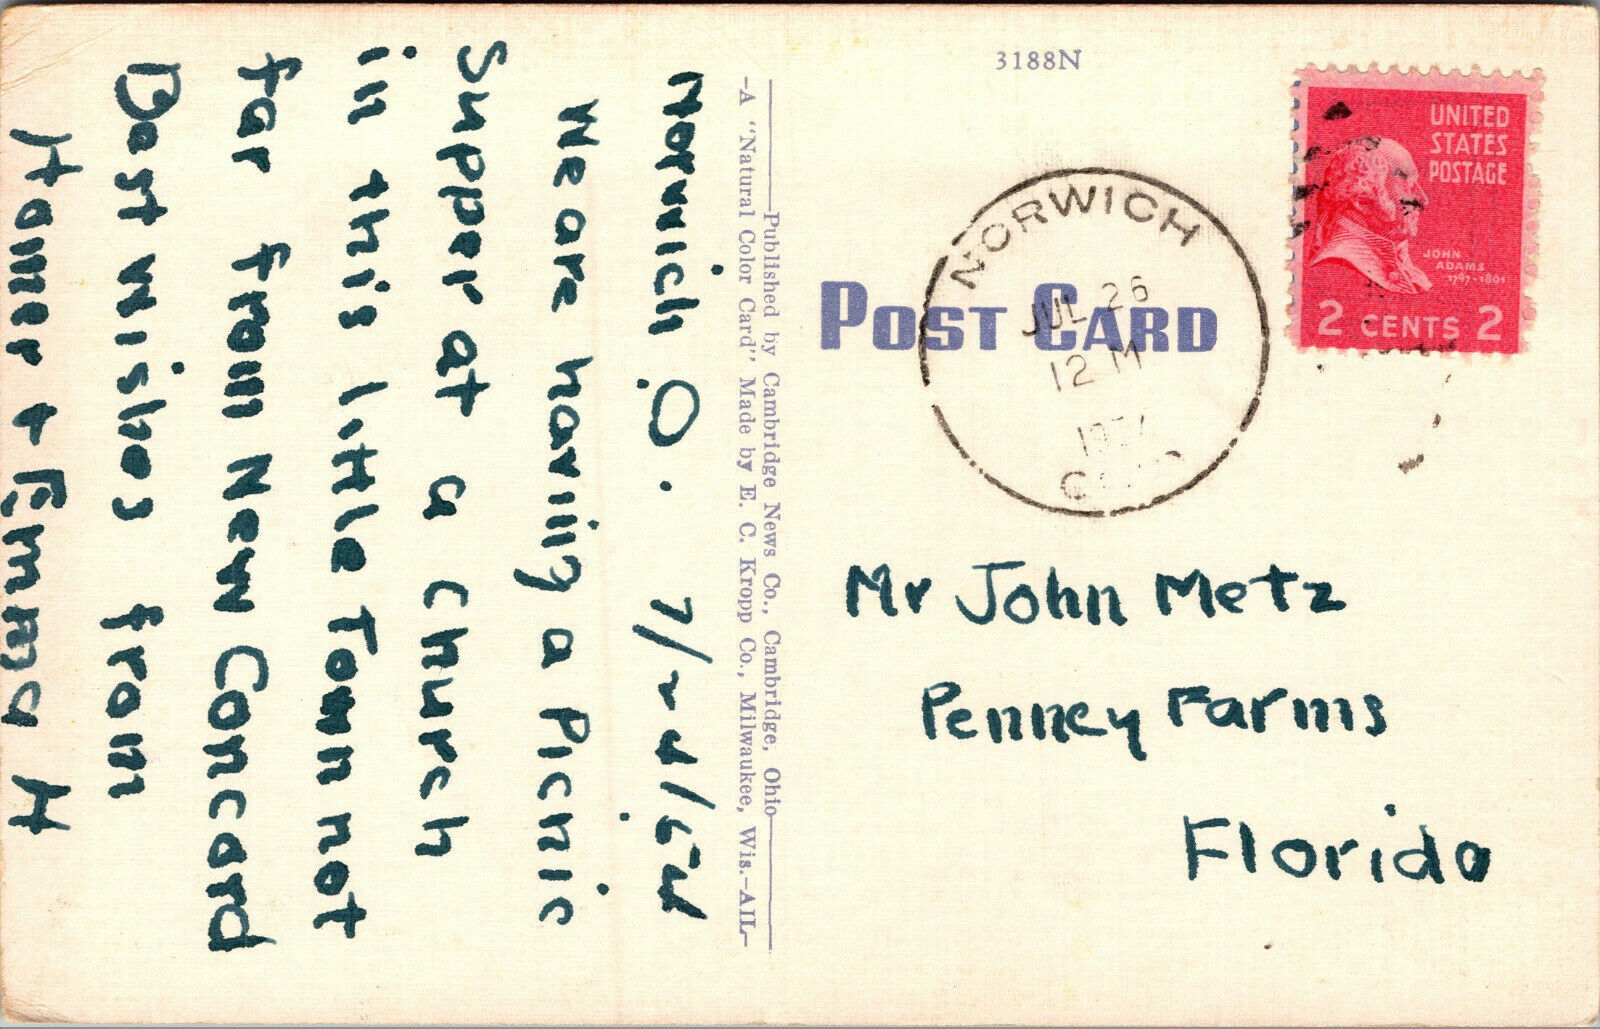 Norwich O. 7/24/54
We are having a Picnic
Supper at a church
in this little Town not
far from New Concord
Best wishes from
Homer + Emma H
Published by Cambridge News Co., Cambridge, Ohio
-A "Natural Color Card" Made by E. C. Kropp Co., Milwaukee, Wis.-AIL-
3188N
POST CARD
NORWICH
JUL 26
12 M
UNITED
STATES
POSTAGE
JOHN
ADAMS
1797-1801
2 CENTS 2
Mr John Metz
Penney Farms
Florida